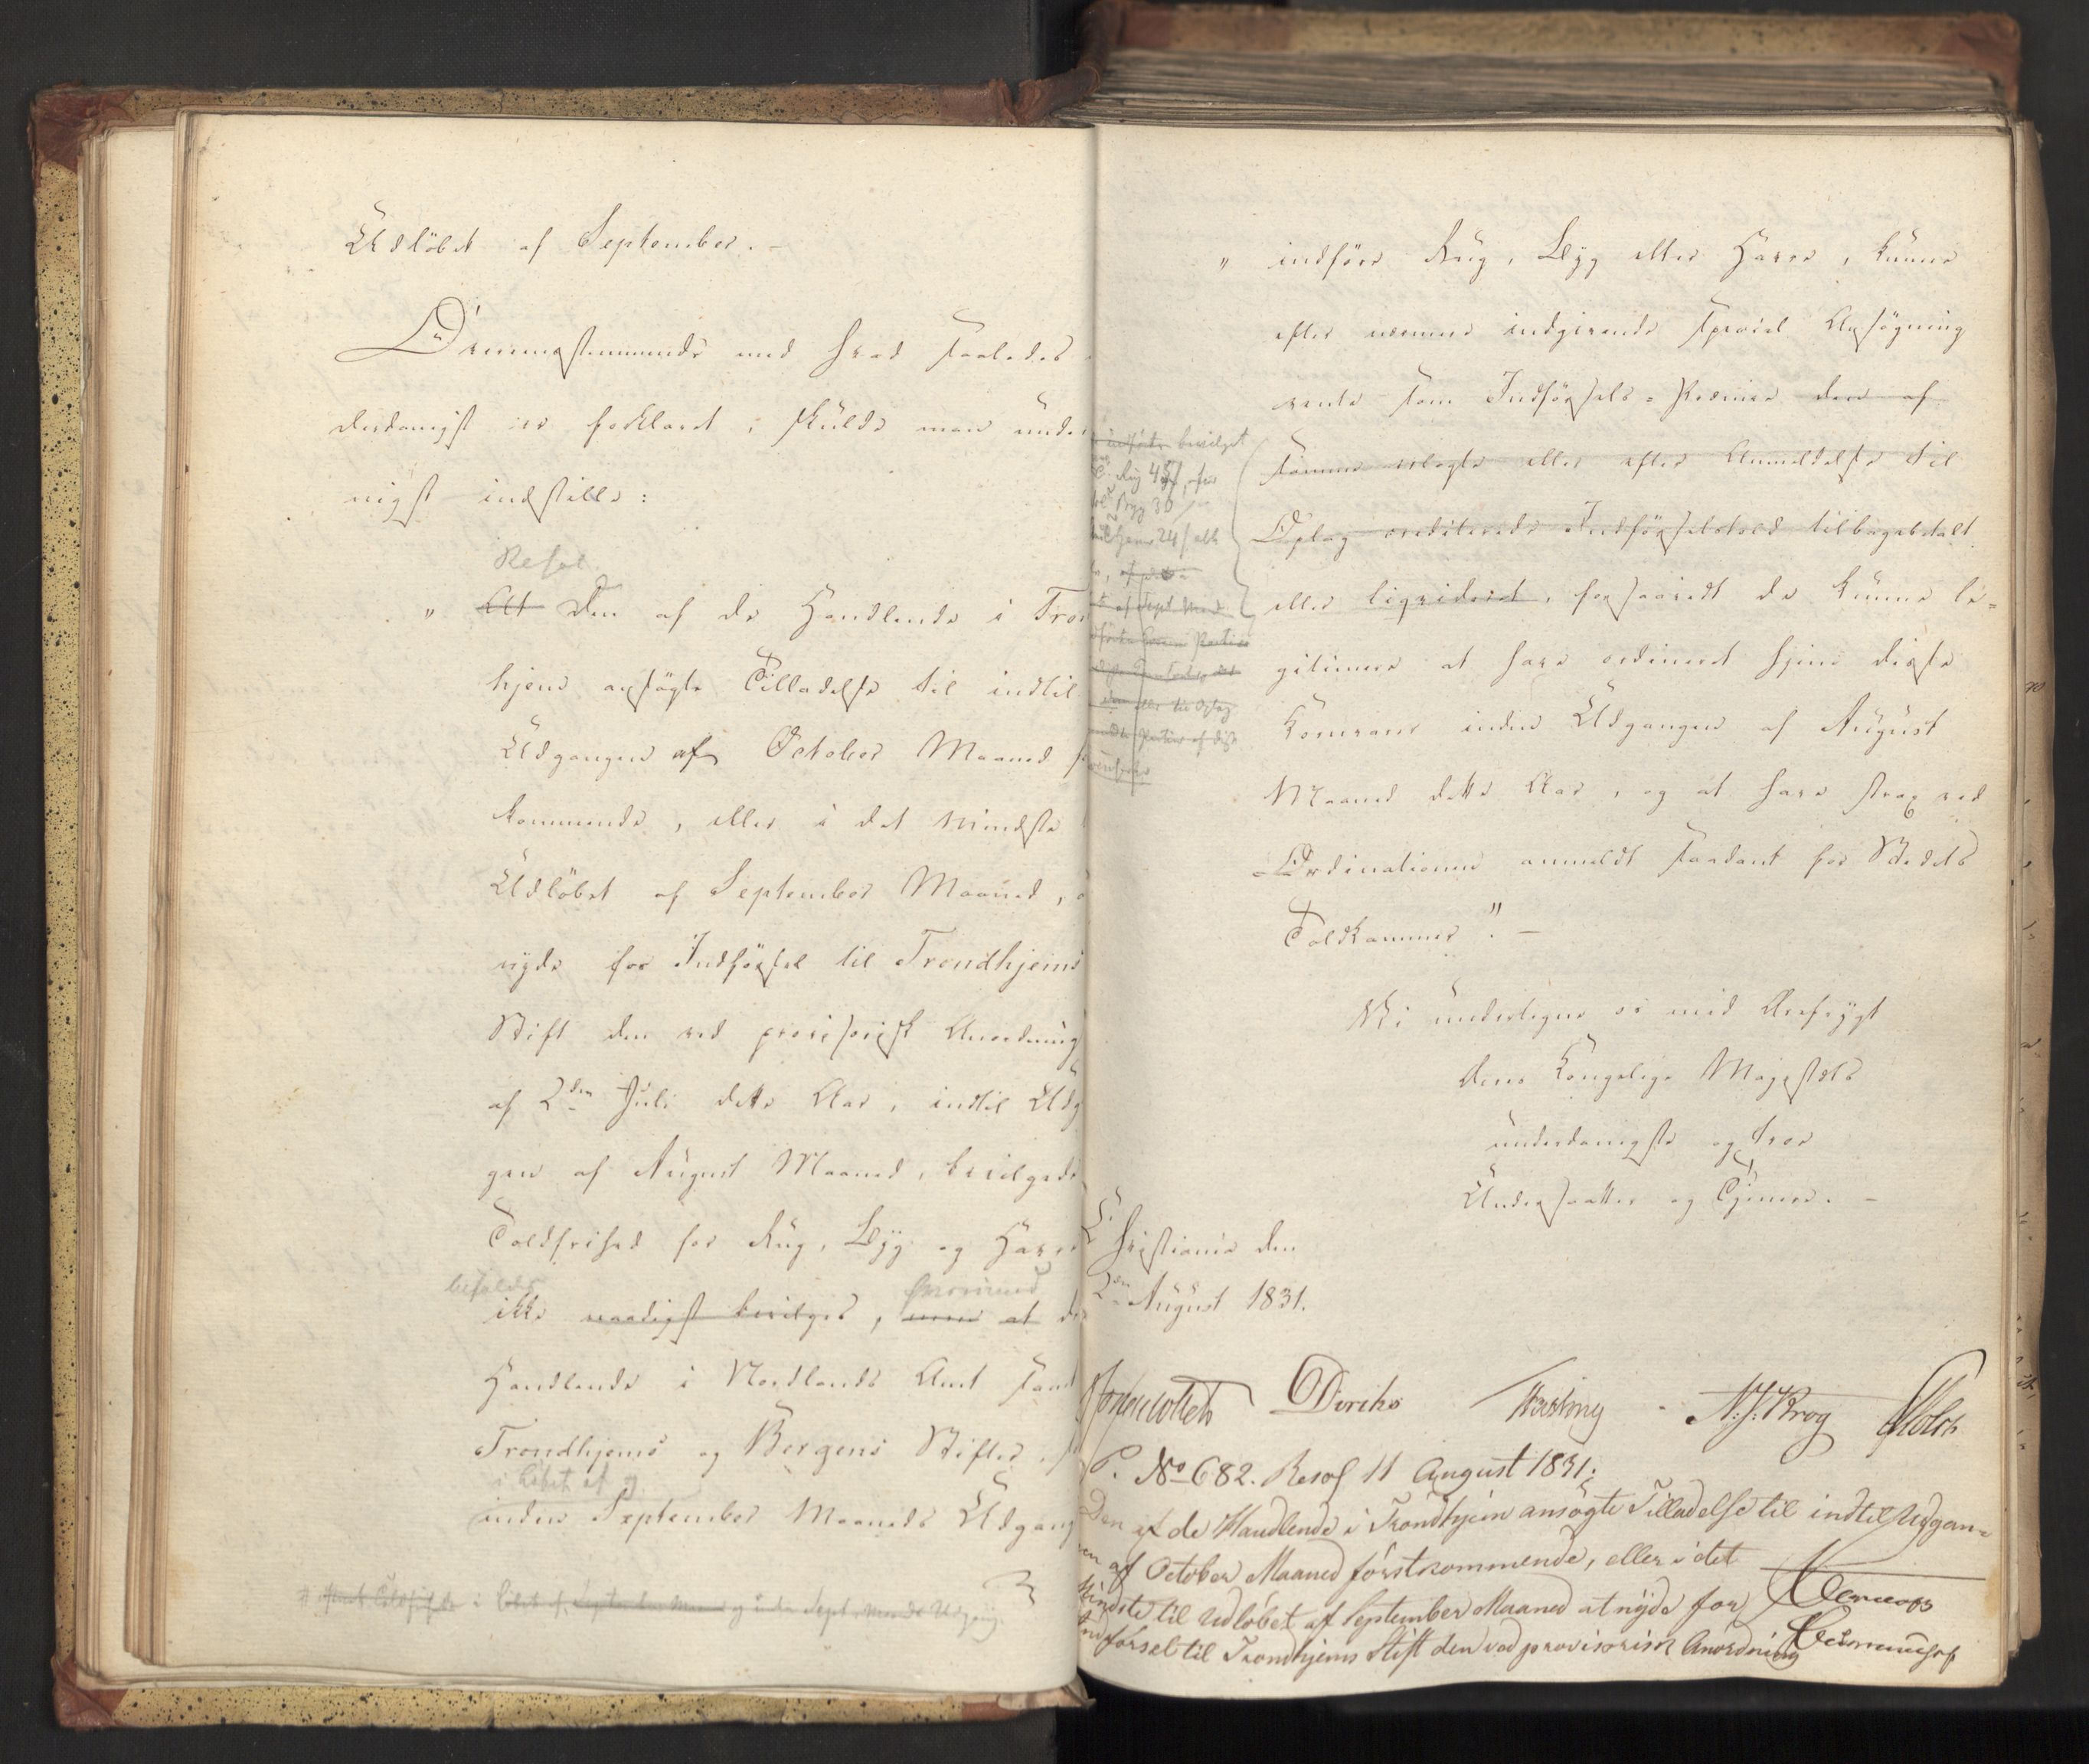 Udløbet af September. -
Overensstemmende med hvad saaledes
derdanigst er forklaret, skulde man under
nigst indstille:
Resol.
" At Den af de Handlende i Tron
hjem ansøgte Tilladelse til indtil
Udgangen af October Maaned
kommende, eller i det mindste
Udløbet af September Maaned,
nyde for Indførsel til Trondhjems
Stift den ved provisorisk Anordning
af 2den Juli dette Aar, indtil Udg
gen af August Maaned, bevilgede
Toldfrihed for Rug, Byg og Havre
bifaldes
ikke naadigst bevilges, men at de
Handlende i Nordlands Amt samt
Trondhjems og Bergens Stifter,
i Løbet af og
inden September Maaneds Udgang
i Løbet af September Maaned og inden Sept. Maaneds Udgang
" indføre Rug, Byg eller Havre, kunne
efter nærmere indgivende special Ansøgning
vente som Indførsels-Præmie den af
samme erlagte eller efter Anmeldelse til
Oplag crediterede Indførselstold tilbagebetalt
eller liqvideret, forsaavidt de kunne le-
gitimere at have ordineret hine disse
Kornvare inden Udgangen af August
Maaned dette Aar, og at have strax ved
Ordinationen anmeldt saadant for Stedets
Toldkammer". -
bevilget
Rug 45 f, for
Byg 30
Havre 24 f
af Sept. Maa
eller til Oplag
Vi undertegne os med Ærefrygt
Deres Kongelige Majestæts
underdanigste og troe
Undersaatter og Tjenere. -
Christiania den
2den August 1831.
Jonas Collett Diriks Fasting N.J. Krog Holst
P. No 682. Resol 11 August 1831.
Den af de Handlende i Trondhjem ansøgte Tilladelse til indtil Udgan-
en af October Maaned førstkommende, eller i det
Mindste til Udløbet af September Maaned at nyde for
Indførsel til Trondhjems Stift den ved provisorisk Anordning